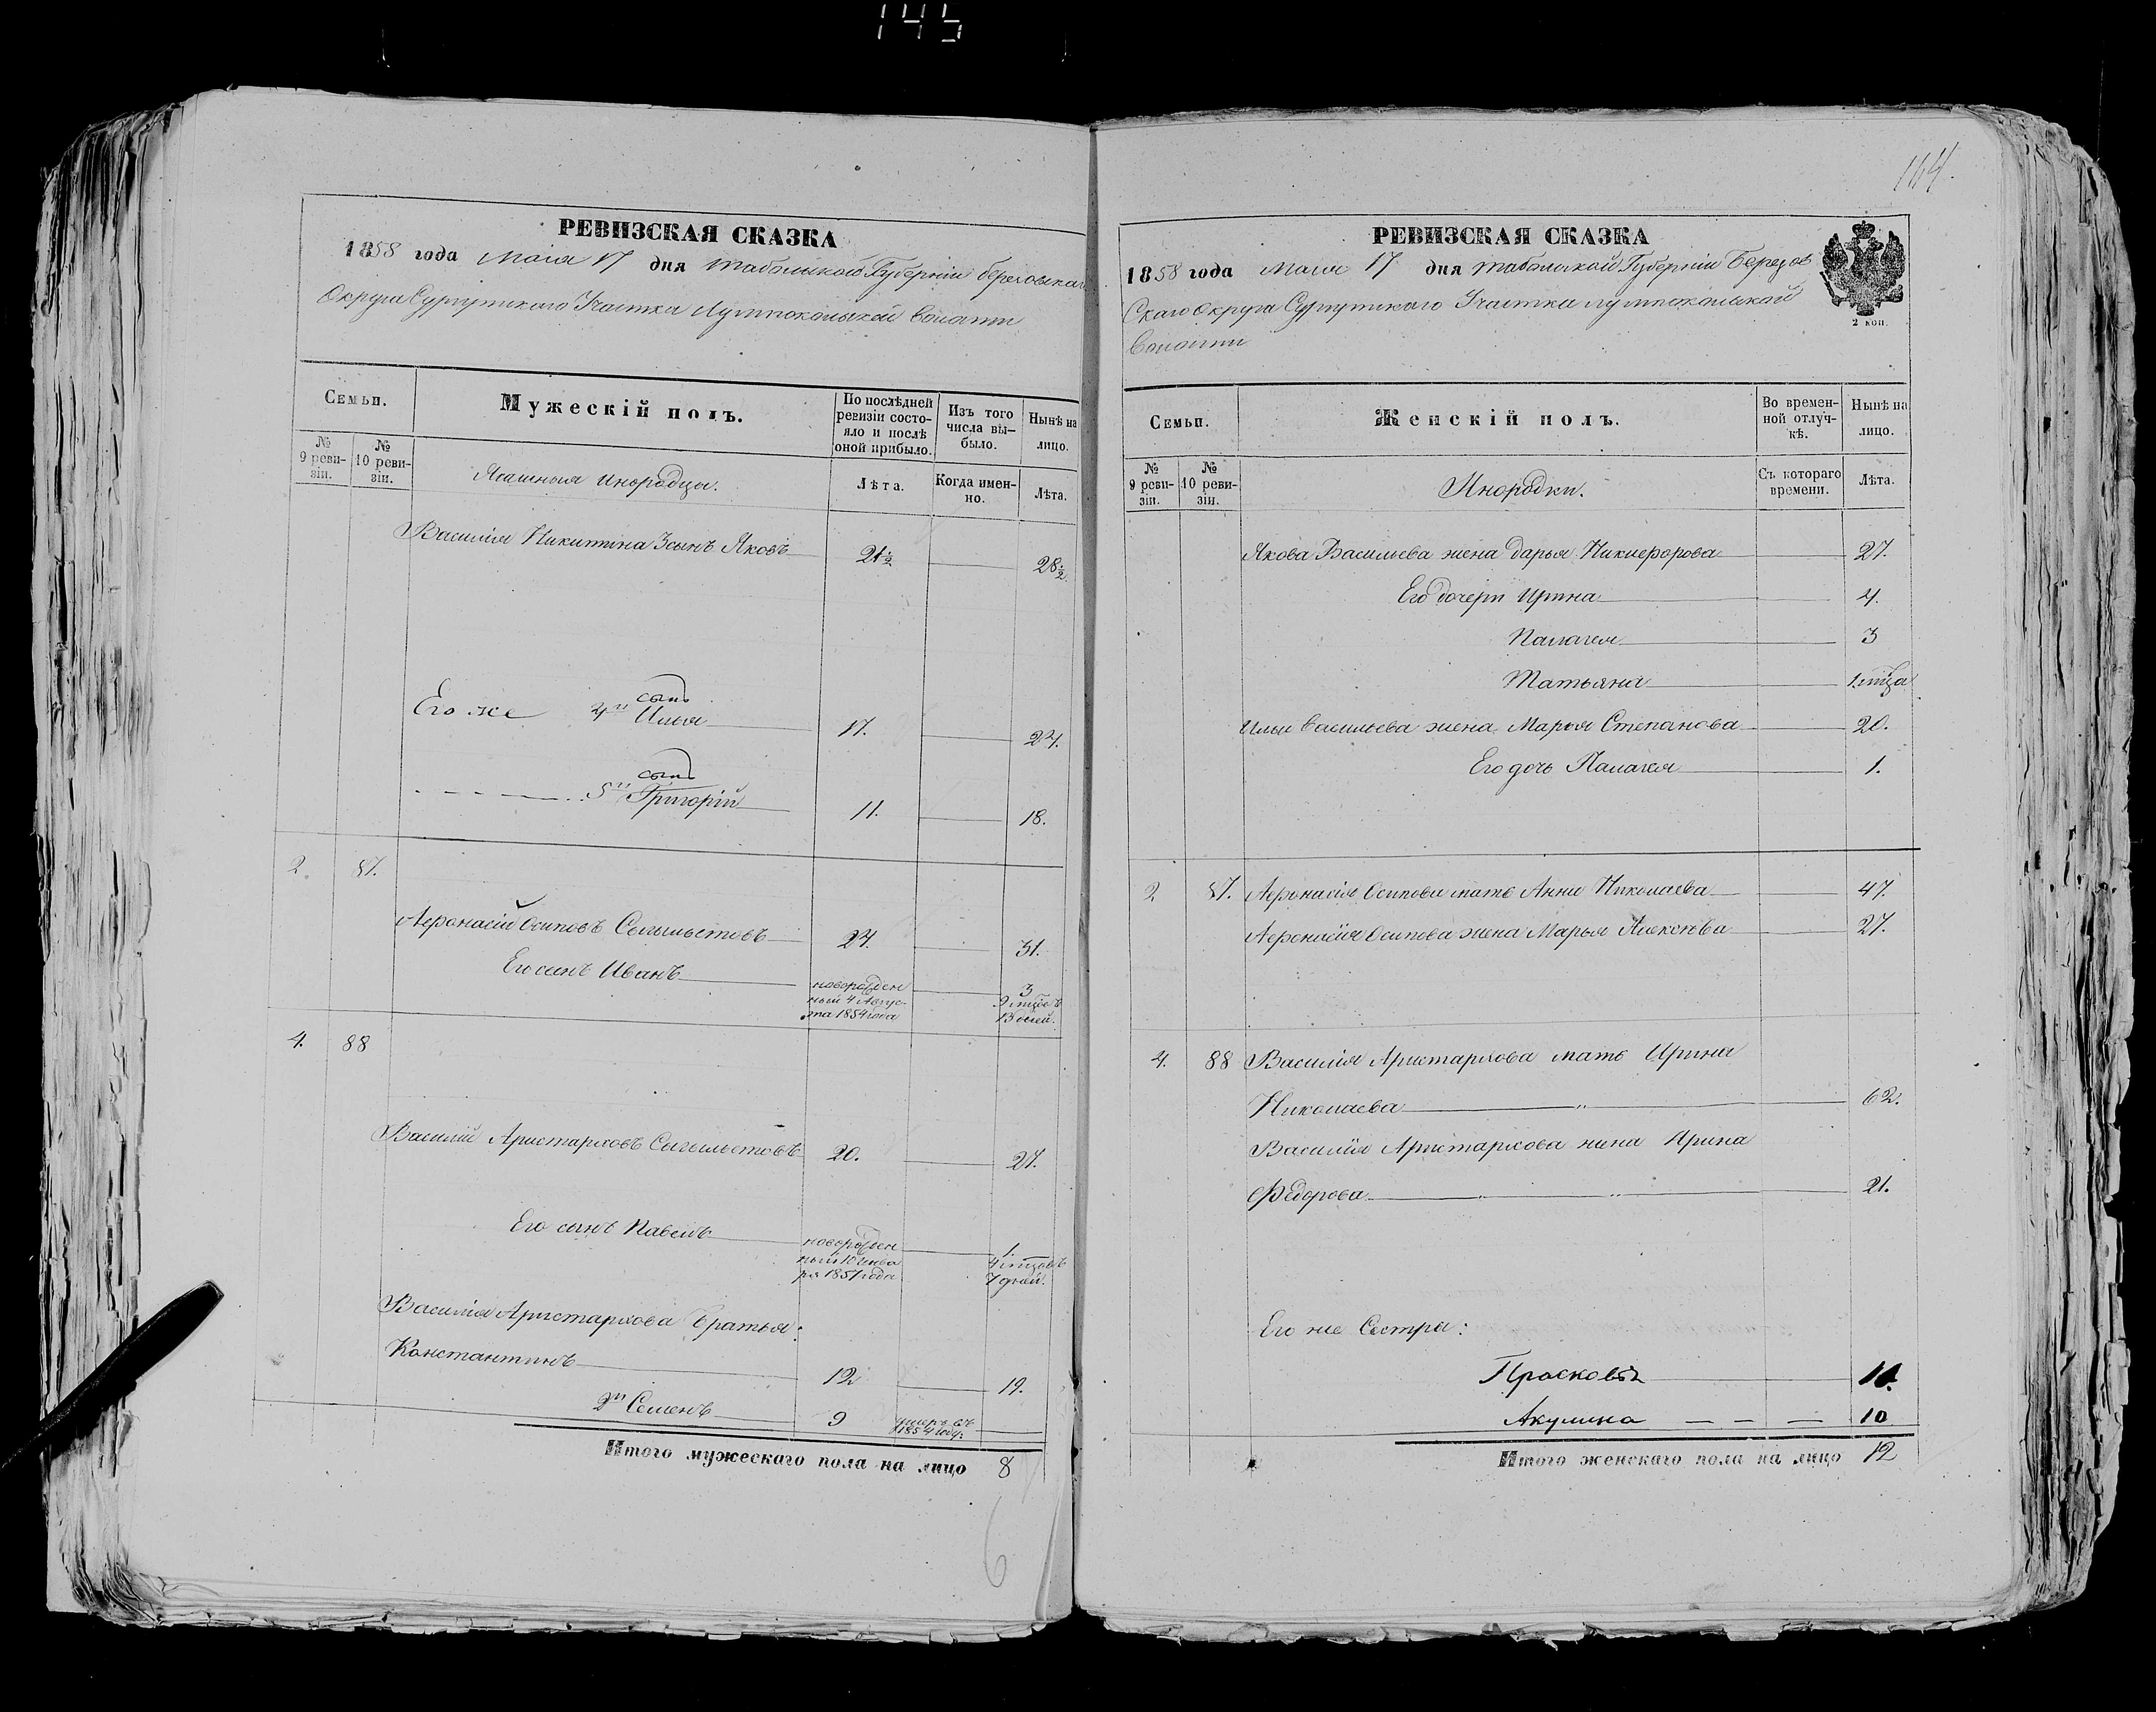 145
РЕВИЗСКАЯ СКАЗКА
1858 года Маія 17 дня Табольской Губерніи Березовскаго
Округа Сургутскаго Участка Лумпокольской волости
Семьи.
Мужескій полъ.
По послѣдней ревизіи состояло и послѣ оной прибыло.
Изъ того числа выбыло.
Нынѣ на лицо.
№ 9 ревизіи.
№ 10 ревизіи.
Ясашныя инородцы.
Лѣта.
Когда именно.
Лѣта.
Василія Никитина 3 сынъ Яковъ 21½ 28½
Его же 4й сынъ Илья 17. 24.
5й сынъ Григорій 11. 18.
2 87.
Афонасій Осиповъ 24. 31.
Его сынъ Иванъ новорожденный 4 Августа 1854 года 3 9 мцовъ 13 дней.
4. 88
Василій Аристарховъ 20. 27.
Его сынъ Павелъ новорожденный 10 Января 1857 года 1. 4 мцовъ 7 дней.
Василія Аристархова братья:
Константинъ 12 19.
2й Семенъ 9 умеръ въ 1854 году.
Итого мужескаго пола на лицо 8
6
144.
РЕВИЗСКАЯ СКАЗКА
1858 года Маія 17 дня Табольской Губерніи Березов
Скаго Округа Сургутскаго Участка Лумпокольской
Волости
2 коп.
Семьи.
Женскій полъ.
Во временной отлучкѣ.
Нынѣ на лицо.
№ 9 ревизіи.
№ 10 ревизіи.
Инородки.
Съ котораго времени.
Лѣта.
Якова Васильева жена Дарья Никифорова 27.
Его дочери Ирина 4.
Палагея 3
Татьяна 1 мца
Ильи Васильева жена Марья Степанова 20.
Его дочь Палагея 1.
2 87. Афонасія Осипова мать Анна Николаева 47.
Афонасія Осипова жена Марья 27.
4. 88 Василія Аристархова мать Ирина
Николаева 62.
Василія Аристархова жена Ирина
Федорова 21.
Его же Сестры:
Прасковья
Акулина 10
Итого женскаго пола на лицо 12